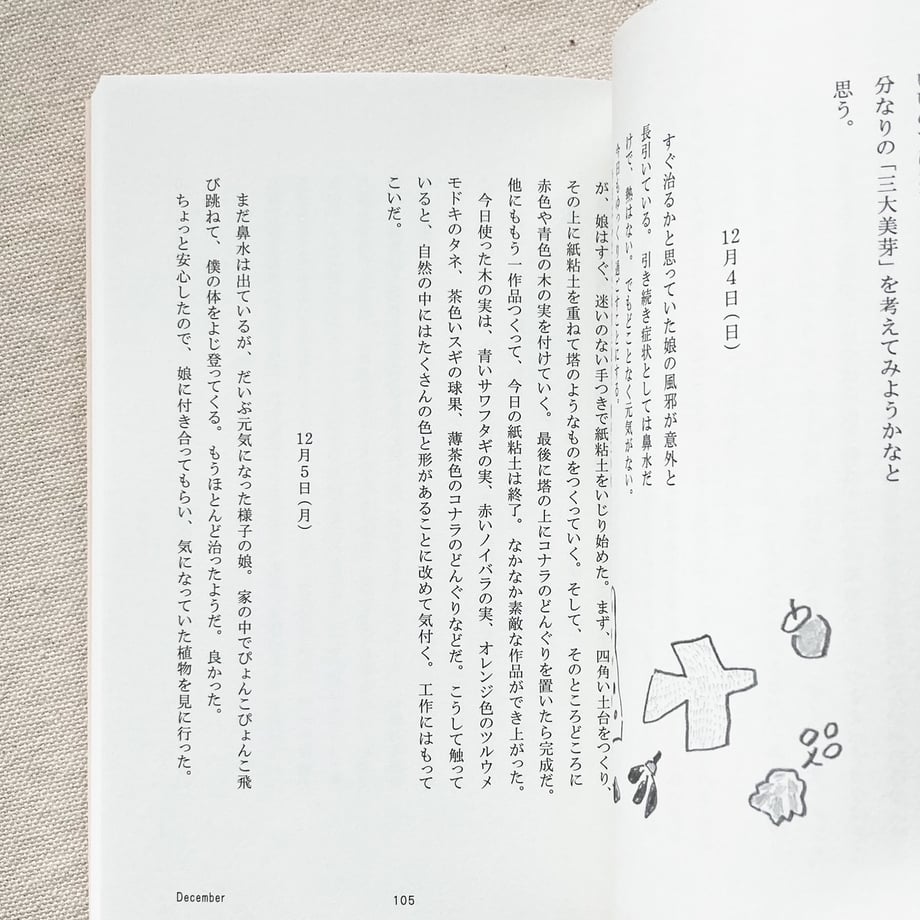 分なりの「三大美芽」を考えてみようかなと
思う。
12月4日(日)
すぐ治るかと思っていた娘の風邪が意外と
長引いている。引き続き症状としては鼻水だ
けで、熱はない。でもどことなく元気がない。
が、娘はすぐ、迷いのない手つきで紙粘土をいじり始めた。まず、四角い土台をつくり、
その上に紙粘土を重ねて塔のようなものをつくっていく。そして、そのところどころに
赤色や青色の木の実を付けていく。最後に塔の上にコナラのどんぐりを置いたら完成だ。
他にももう一作品つくって、今日の紙粘土は終了。なかなか素敵な作品ができ上がった。
今日使った木の実は、青いサワフタギの実、赤いノイバラの実、オレンジ色のツルウメ
モドキのタネ、茶色いスギの球果、薄茶色のコナラのどんぐりなどだ。こうして触って
いると、自然の中にはたくさんの色と形があることに改めて気付く。工作にはもって
こいだ。
12月5日(月)
まだ鼻水は出ているが、だいぶ元気になった様子の娘。家の中でぴょんこぴょんこ飛
び跳ねて、僕の体をよじ登ってくる。もうほとんど治ったようだ。良かった。
ちょっと安心したので、娘に付き合ってもらい、気になっていた植物を見に行った。
December
105